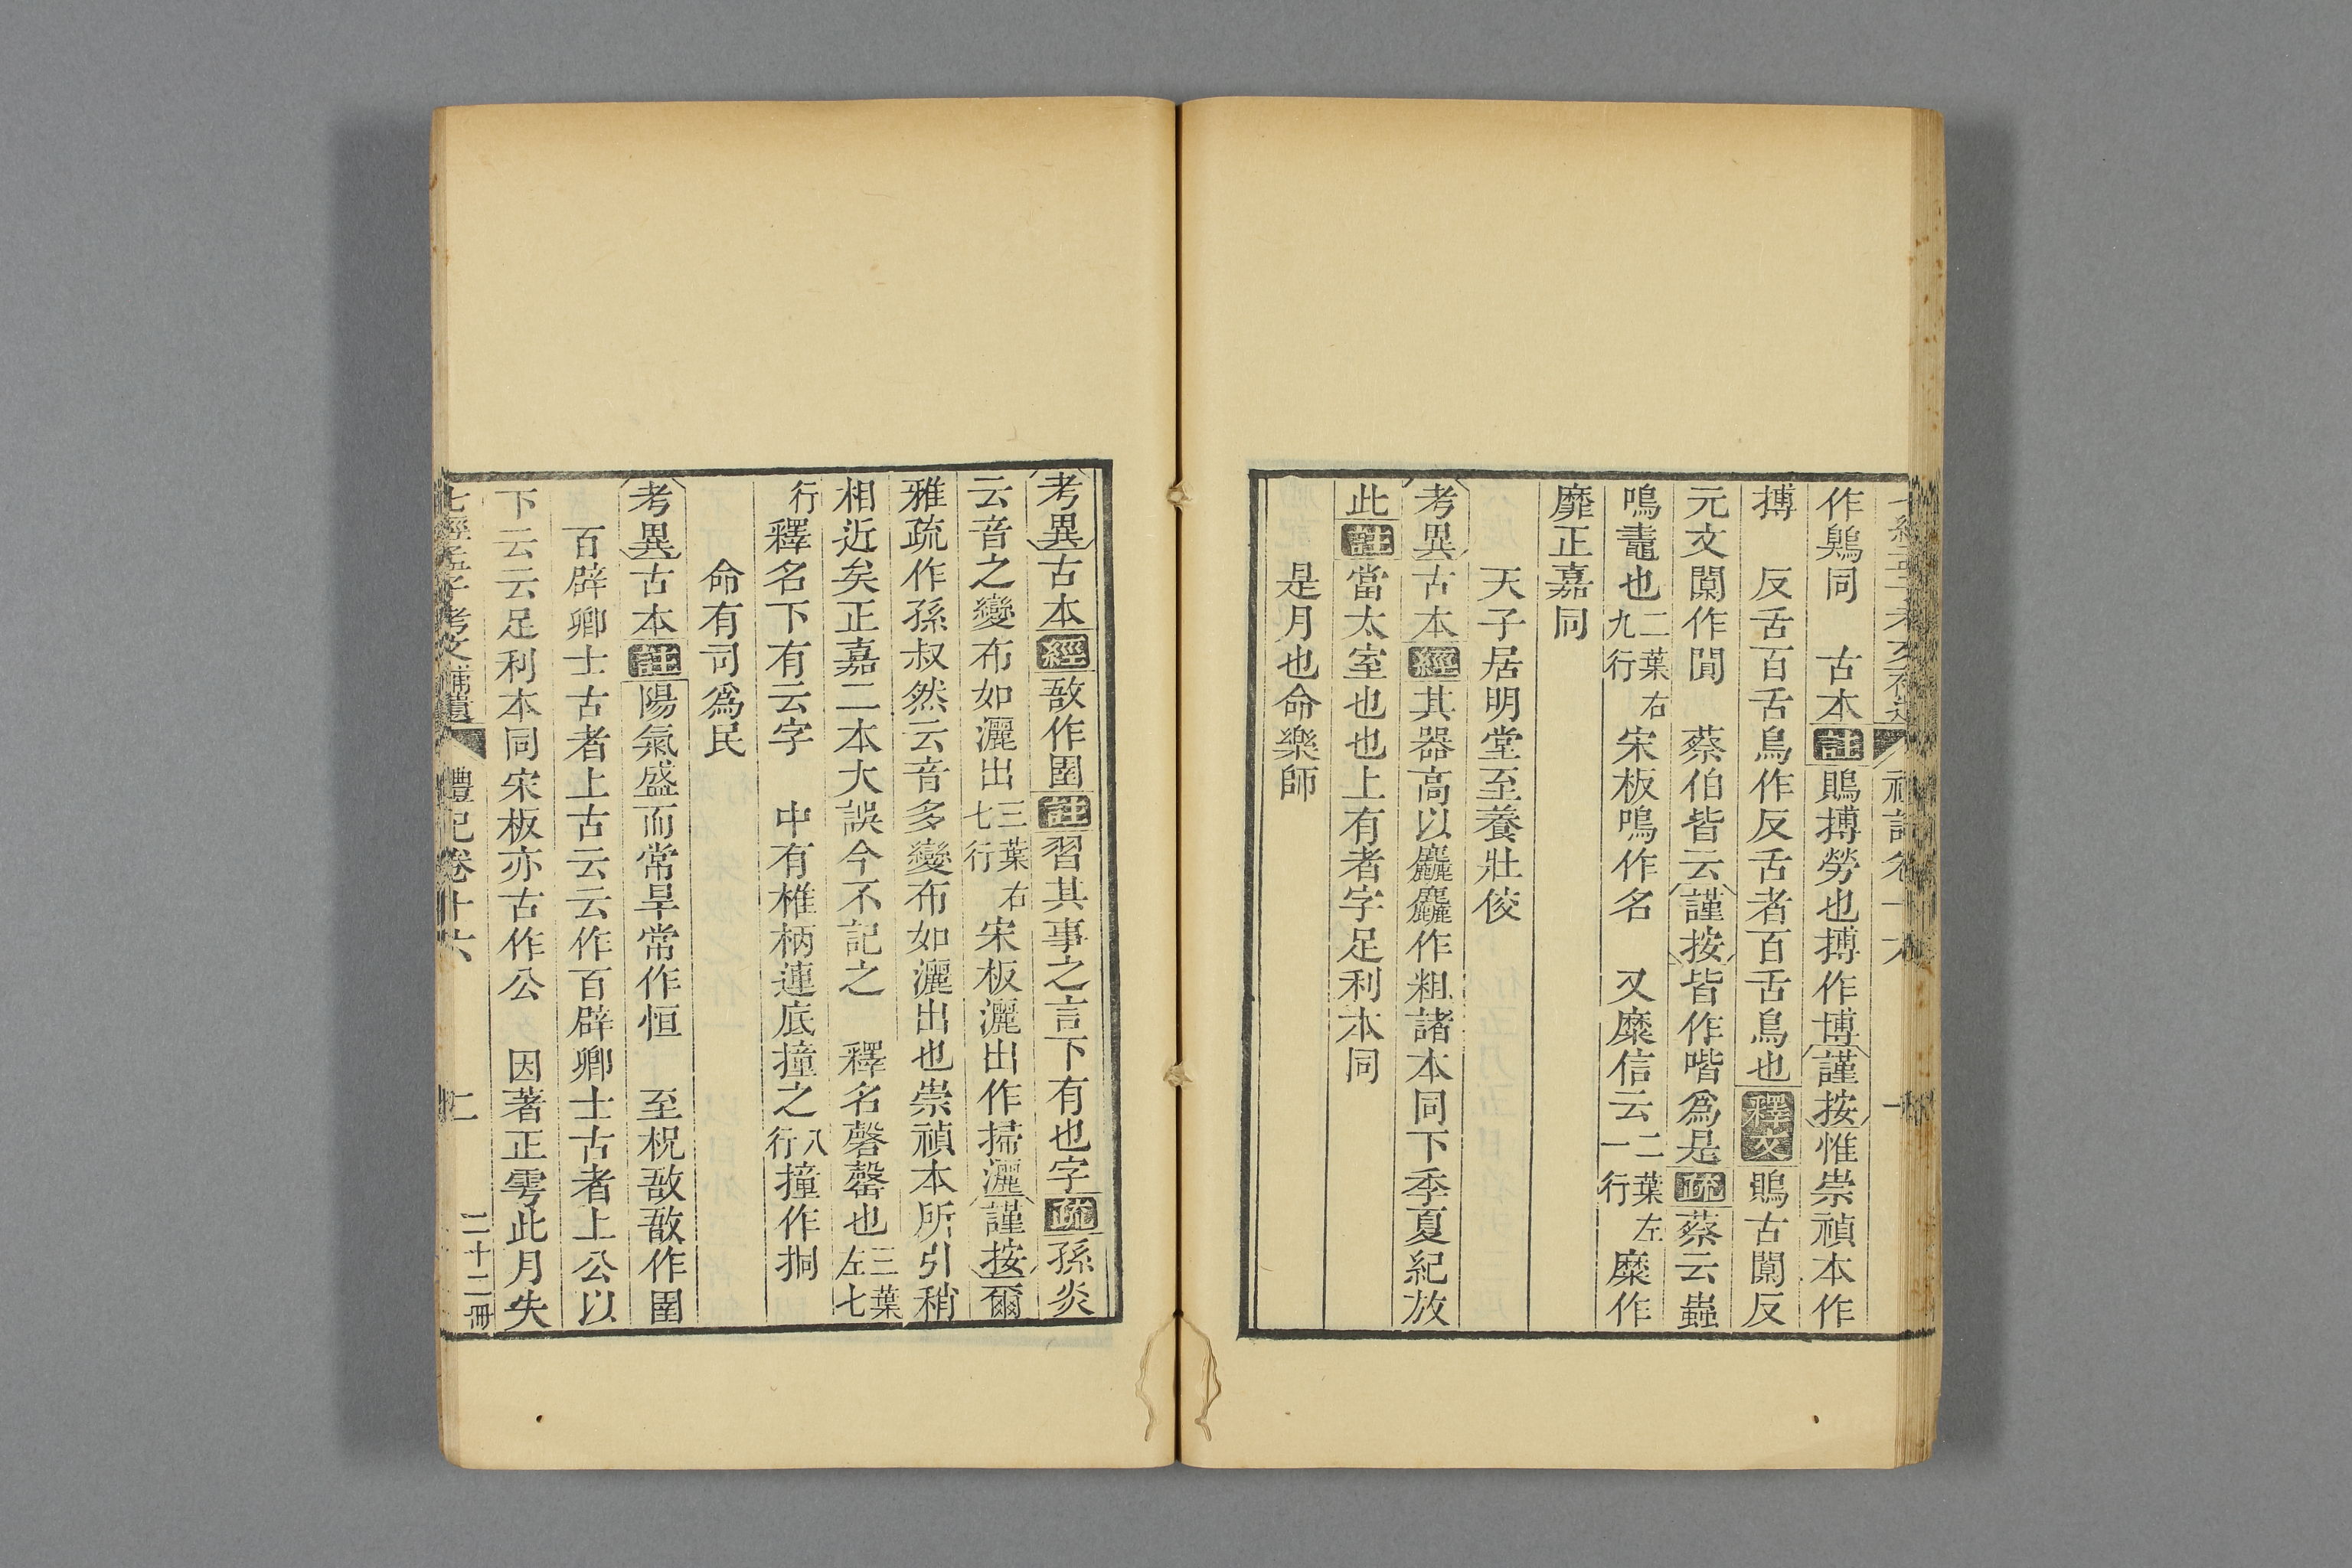 作鶪同　古本註鵙搏勞也搏作博謹按惟崇禎本作
搏　反舌百舌鳥作反舌者百舌鳥也釋文鵙古闃反
元文闃作閴　蔡伯皆云謹按皆作喈爲是疏蔡云蟲
鳴鼃也二葉右九行宋板鳴作名　又糜信云二葉左一行糜作
靡正嘉同
天子居明堂至養壯佼
考異古本經其器高以麤麤作粗諸本同下季夏紀放
此註當太室也也上有者字足利本同
是月也命樂師
考異古本經敔作圉註習其事之言下有也字疏孫炎
云音之變布如灑出三葉右七行宋板灑出作掃灑謹按爾
雅疏作孫叔然云音多變布如灑出也崇禎本所引稍
相近矣正嘉二本大誤今不記之　釋名磬罄也三葉左七
行釋名下有云字　中有椎柄連底撞之八行撞作挏
命有司爲民
考異古本註陽氣盛而常旱常作恒　至柷敔敔作圉
百辟卿士古者上古云云作百辟卿士古者上公以
下云云足利本同宋板亦古作公　因著正雩此月失
七經孟子考文補遺　禮記卷十六　二　二十二冊